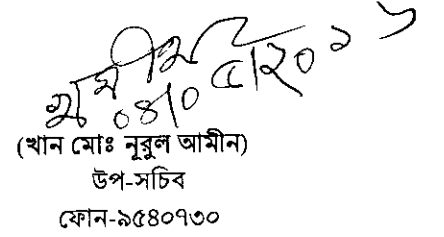 ০৪/০৫/২০১৬
(খান মোঃ নূরুল আমীন)
উপ-সচিব
ফোন-৯৫৪০৭৩০